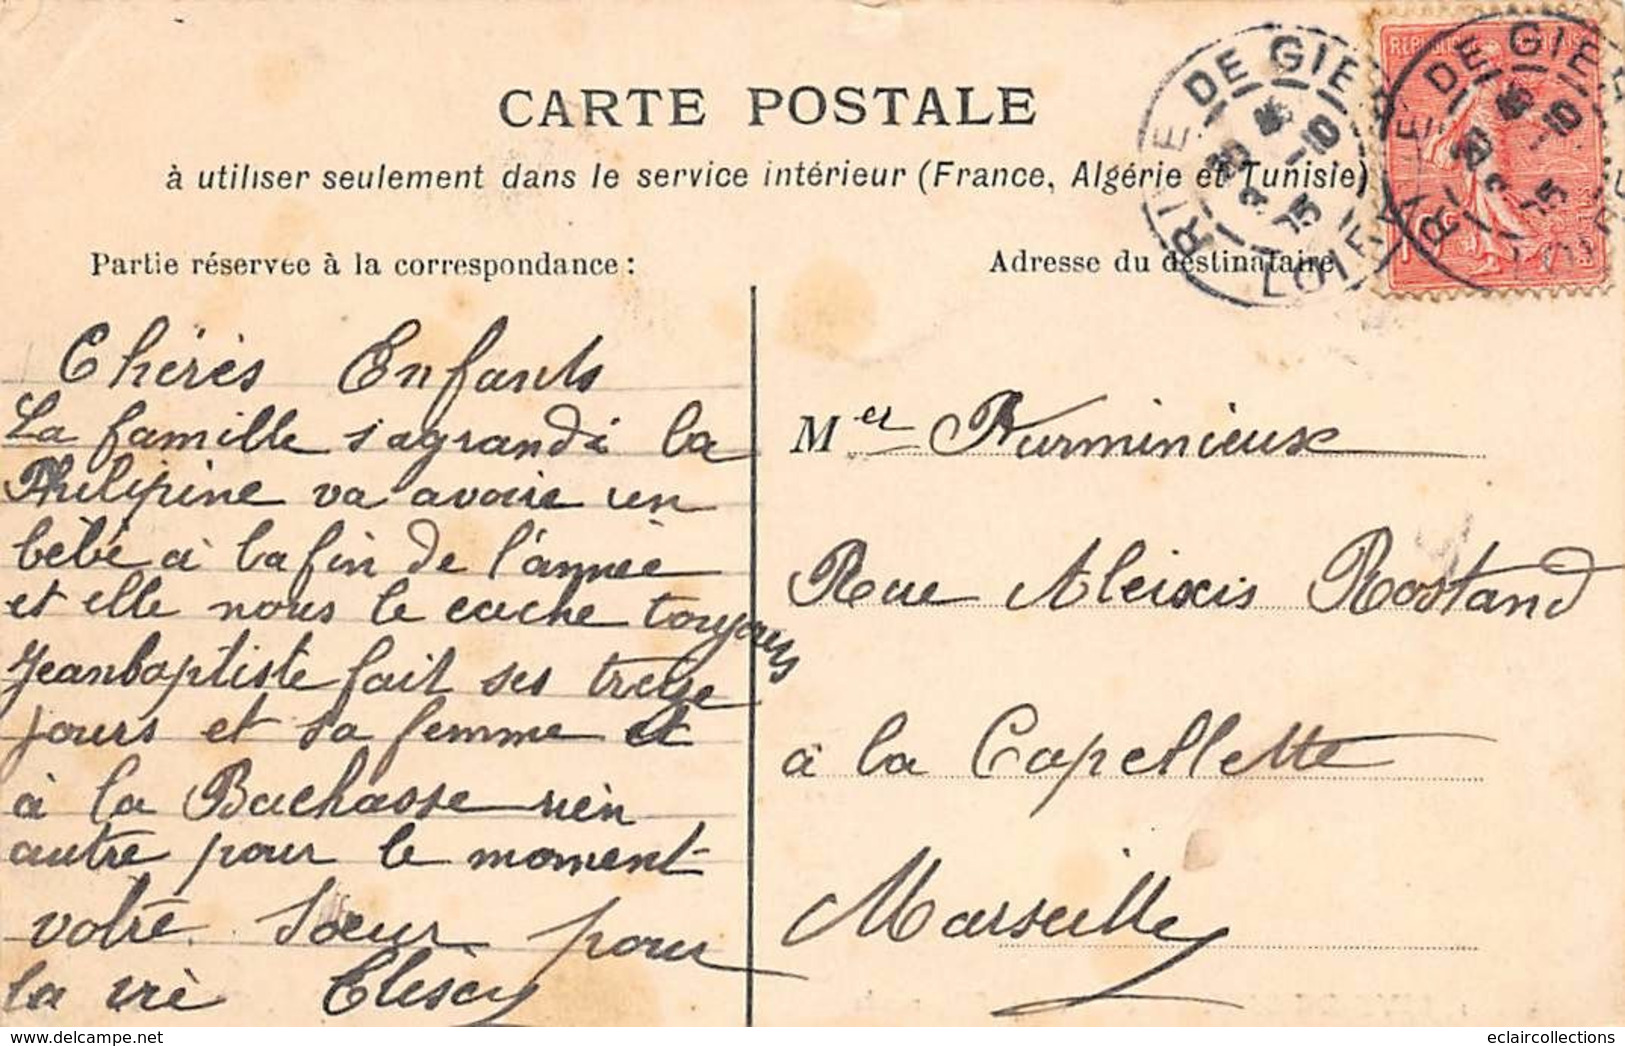 CARTE POSTALE
à utiliser seulement dans le service intérieur (France, Algérie et Tunisie)
Partie réservée à la correspondance :
Adresse du destinataire
RIVE DE GIER
LOIRE
RIVE DE GIER
REPUBLIQUE FRANÇAISE
Chérès Enfants
La famille s'agrandi la
Philipine va avoire un
bébé à la fin de l'année
et elle nous le cache toujours
Jeanbaptiste fait ses treize
jours et sa femme et
à la Bachasse rien
autre pour le moment
votre Sœur pour
la vie
M
Rue Aleixis Rostand
à la Capellette
Marseille
www.delcampe.net
eclaircollections